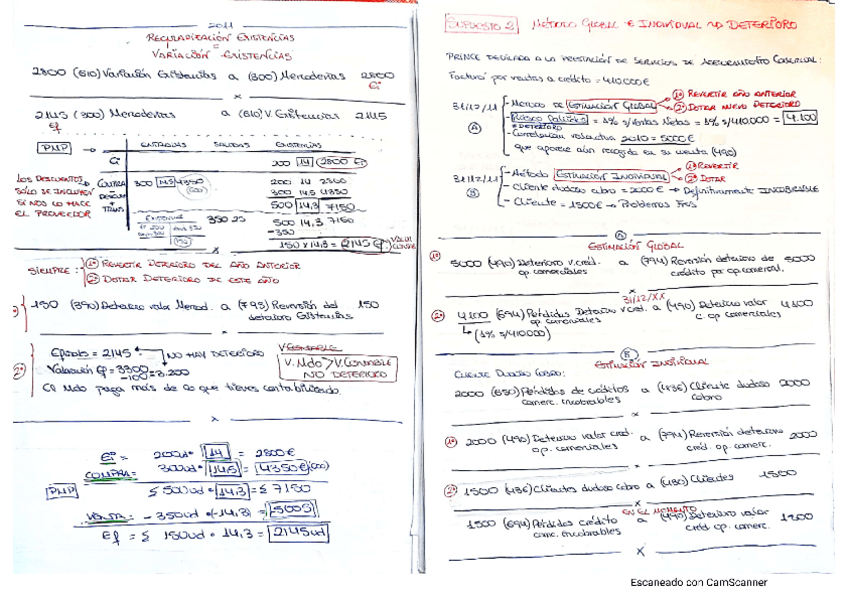 2011
REGULARIZACIÓN EXISTENCIAS
=
VARIACIÓN EXISTENCIAS
2800 (610) Variación Existencias a (300) Mercaderías 2800
Ei
x
2145 (300) Mercaderías a (610) V. Existencias 2145
Ef
PMP → ENTRADAS SALIDAS EXISTENCIAS
Ei 200 14 2800 Ei
LOS DESCUENTOS
SOLO SE INCLUYEN
SI NOS LO HACE
EL PROVEEDOR
COMPRA 300 14,5 4350
200 14 2800
300 14,5 4350
500 14,3 7150
350 25
500 14,3 7150
-350
150 x 14,3 = 2145
x
SIEMPRE: 1º REVERTIR DETERIORO DEL AÑO ANTERIOR
2º DOTAR DETERIORO DE ESTE AÑO
150 (390) Deterioro valor Mercad. a (793) Reversión del 150
deterioro Existencias
2º
= 2145 → NO HAY DETERIORO
V. CONTABLE
Valoración = 3300
-100 = 3.200
V. Mdo > V. CONTABLE
NO DETERIORO
El Mdo paga más de lo que tienes contabilizado.
x
Ei = 200ud · 14 = 2800€
COMPRA = 300ud · 14,5 = 4350€
PMP
Σ 500ud · 14,3 = Σ 7150
VENTA = - 350ud · (-14,3) = -5005
Ef = Σ 150ud · 14,3 = 2145ud
SUPUESTO 2 MÉTODO GLOBAL E INDIVIDUAL → DETERIORO
PRINCE DEDICADA A LA PRESTACIÓN DE SERVICIOS DE
Factura por ventas a crédito = 410000€
1º REVERTIR AÑO ANTERIOR
31/12/11 - MÉTODO DE ESTIMACIÓN GLOBAL 2º DOTAR NUEVO DETERIORO
A
- = 1% s/Ventas Netas = 1% s/410.000 = 4.100
DETERIORO
- Corrección valorativa 2010 = 5000€
que aparece aún recogida en su cuenta (490)
1º REVERTIR
31/12/11 - Método ESTIMACIÓN INDIVIDUAL 2º DOTAR
B
- Cliente dudoso cobro = 2000€ → Definitivamente INCOBRABLE
- Cliente = 1500€ → Problemas
A
ESTIMACIÓN GLOBAL
1º 5000 (490) Deterioro v. créd. a (794) Reversión deterioro de 5000
op. comerciales crédito por op. comercial.
31/12/XX
2º 4100 (694) Pérdidas Deterioro v cred. a (490) Deterioro valor 4100
op. comerciales c. op. comerciales
(1% s/410000)
B
ESTIMACIÓN INDIVIDUAL
CLIENTE DUDOSO COBRO:
2000 (650) Pérdidas de créditos a (436) Cliente dudoso 2000
comerc. incobrables cobro
x
1º 2000 (490) Deterioro valor cred. a (794) Reversión deterioro 2000
op. comerc. créd. op. comerc.
x
2º 1500 (436) Clientes dudoso cobro a (430) Clientes 1500
x
EN EL MOMENTO
1500 (694) Pérdidas crédito a (490) Deterioro valor 1500
comerc. incobrables créd op. comerc.
x
Escaneado con CamScanner